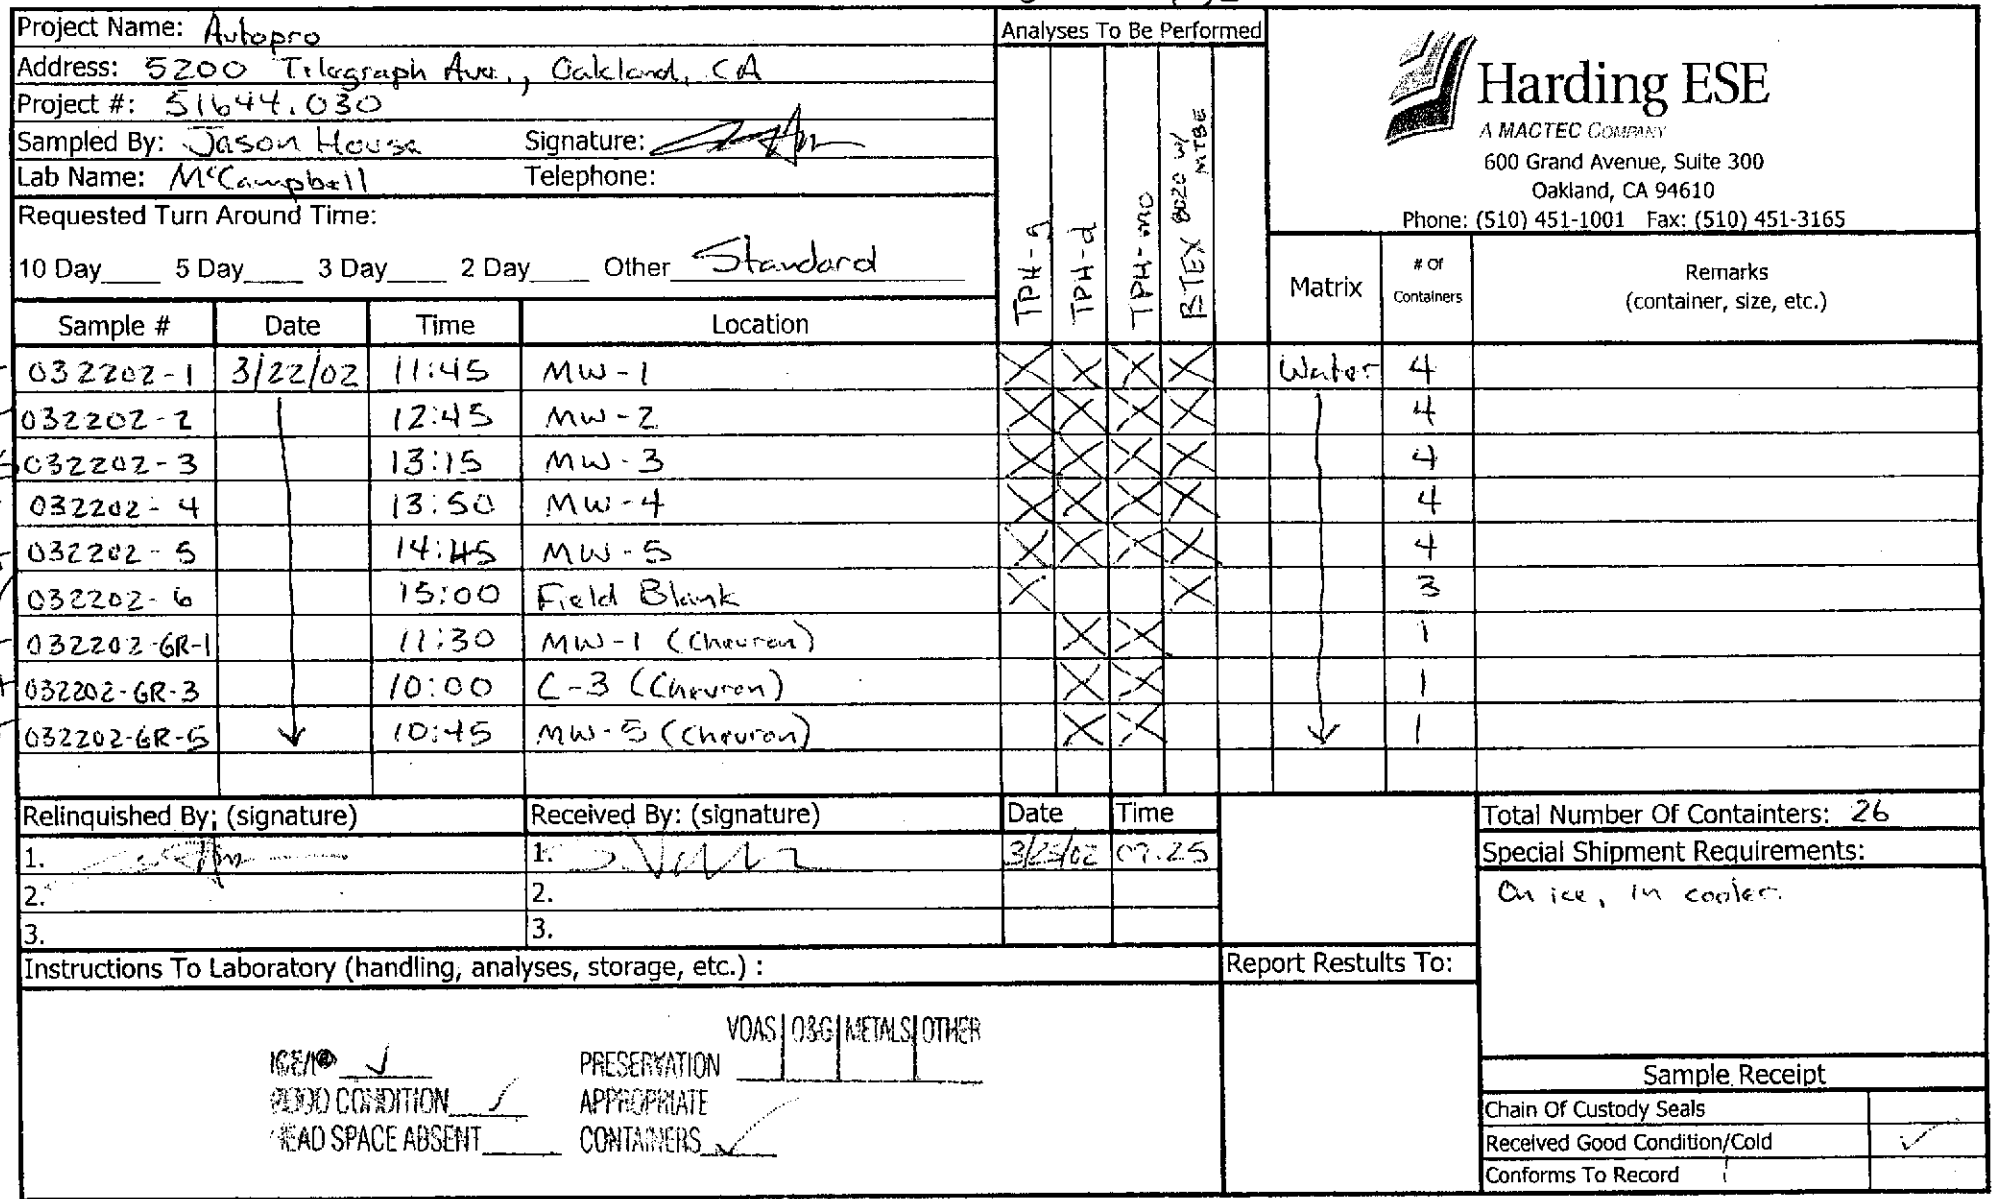 Project Name: Autopro
Address: 5200 Telegraph Ave., Oakland, CA
Project #: 51644.030
Sampled By: Jason House Signature:
Lab Name: McCampbell Telephone:
Requested Turn Around Time:
10 Day____ 5 Day____ 3 Day____ 2 Day____ Other Standard
Analyses To Be Performed
TPH-g
TPH-d
TPH-mo
BTEX 8020 w/ MTBE
Harding ESE
A MACTEC COMPANY
600 Grand Avenue, Suite 300
Oakland, CA 94610
Phone: (510) 451-1001 Fax: (510) 451-3165
Sample # Date Time Location Matrix # Of Containers Remarks (container, size, etc.)
032202-1 3/22/02 11:45 MW-1 X X X X Water 4
032202-2 12:45 MW-2 X X X X 4
032202-3 13:15 MW-3 X X X X 4
032202-4 13:50 MW-4 X X X X 4
032202-5 14:45 MW-5 X X X X 4
032202-6 15:00 Field Blank X X 3
032202-GR-1 11:30 MW-1 (Chevron) X X 1
032202-GR-3 10:00 C-3 (Chevron) X X 1
032202-GR-5 10:45 MW-5 (Chevron) X X 1
Relinquished By: (signature) Received By: (signature) Date Time
1. 1. 3/25/02 09:25
2. 2.
3. 3.
Total Number Of Containters: 26
Special Shipment Requirements:
On ice, in cooler.
Instructions To Laboratory (handling, analyses, storage, etc.) :
Report Restults To:
VOAS | O&G | METALS | OTHER
ICE/ ✓ PRESERVATION
GOOD CONDITION ✓ APPROPRIATE
HEAD SPACE ABSENT____ CONTAINERS ✓
Sample Receipt
Chain Of Custody Seals
Received Good Condition/Cold ✓
Conforms To Record